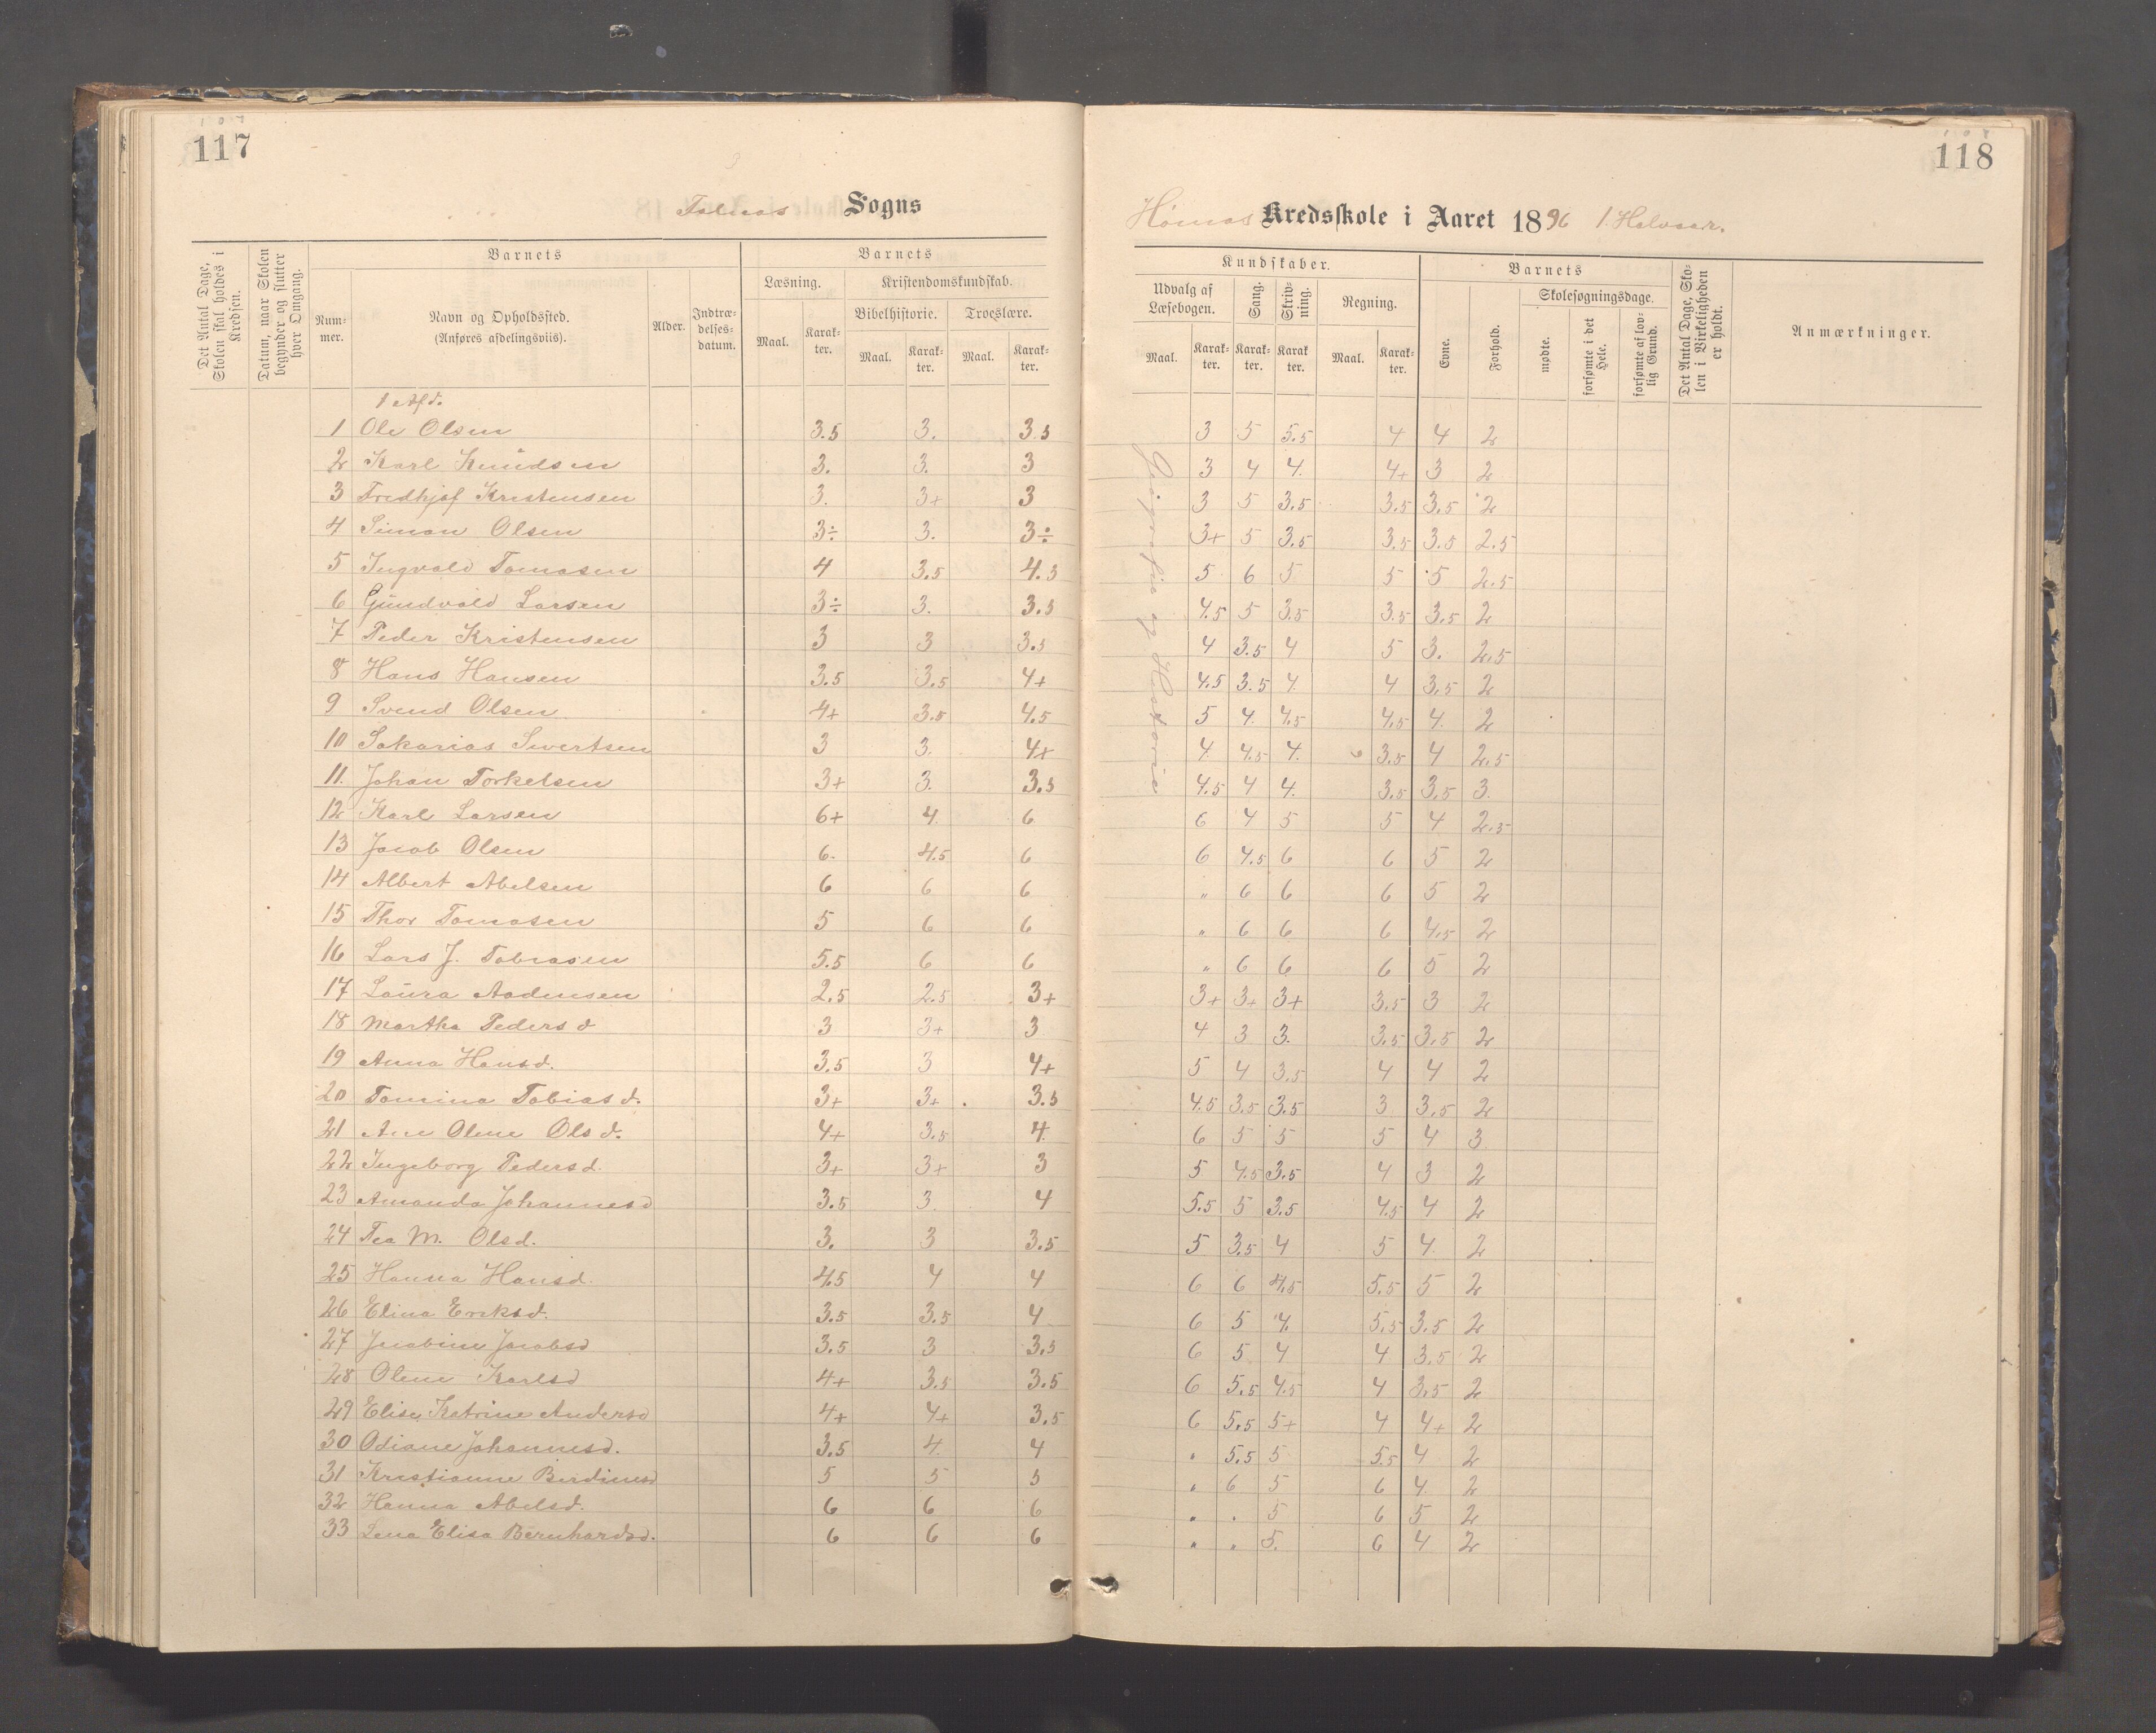 117
Falnæs Sogns
Det Antal Dage, Skolen skal holdes i Kredsen.
Datum, naar Skolen begynder og slutter hver Omgang.
Barnets
Nummer.
Navn og Opholdssted.
(Anføres afdelingsviis).
Alder.
Indtrædelsesdatum.
Barnets
Læsning.
Kristendomskundskab.
Bibelhistorie.
Troeslære.
Maal.
Karakter.
Maal.
Karakter.
Maal.
Karakter.
1 Afd.
1 Ole Olsen 3.5 3. 3.5
2 Karl Knudsen 3. 3. 3
3 Fredhjof Kristensen 3. 3+ 3
4 Simon Olsen 3÷ 3. 3÷
5 Ingvald Tomasen 4 3.5 4.5
6 Gundvald Larsen 3÷ 3. 3.5
7 Peder Kristensen 3 3 3.5
8 Hans Hansen 3.5 3.5 4+
9 Svend Olsen 4+ 3.5 4.5
10 Sakarias Sivertsen 3 3. 4+
11. Johan Torkelsen 3+ 3. 3.5
12 Karl Larsen 6+ 4. 6
13 Jacob Olsen 6. 4.5 6
14 Albert Abelsen 6 6 6
15 Thor Tomasen 5 6 6
16 Lars J. Tobiasen 5.5 6 6
17 Laura Aadnesen 2.5 2.5 3+
18 Martha Pedersd 3 3+ 3
19 Anna Hansd. 3.5 3 4+
20 Tomina Tobiasd. 3+ 3+ 3.5
21 Ane Olene Olsd. 4+ 3.5 4.
22 Ingeborg Pedersd. 3+ 3+ 3
23 Amanda Johannesd 3.5 3. 4
24 Tea M. Olsd. 3. 3 3.5
25 Hanna Hansd. 4.5 4 4
26 Elina Eriksd. 3.5 3.5 4
27 Jacobine Jacobsd 3.5 3 3.5
28 Olene Karlsd 4+ 3.5 3.5
29 Elise Katrine Andersd 4+ 4+ 3.5
30 Odiane Johannesd. 3.5 4. 4
31 Kristianne Berdinesd 5 5 5
32 Hanna Abelsd. 6 6 6
33 Lena Elisa Bernhardsd. 6 6 6
118
Kredsskole i Aaret 1896 1. Halvaar.
Kundskaber.
Udvalg af Læsebogen.
Sang.
Skrivning.
Regning.
Maal.
Karakter.
Karakter.
Karakter.
Maal.
Karakter.
Barnets
Evne.
Forhold.
Skolesøgningsdage.
mødte.
forsømte i det Hele.
forsømte af lovlig Grund.
Det Antal Dage, Skolen i Virkeligheden er holdt.
Anmærkninger.
Geografie og Historie
3 5 5.5 4 4 2
3 4 4. 4+ 3 2
3 5 3.5 3.5 3.5 2
3+ 5 3.5 3.5 3.5 2.5
5 6 5 5 5 2.5
4.5 5 3.5 3.5 3.5 2
4 3.5 4 5 3. 2.5
4.5 3.5 4. 4 3.5 2
5 4. 4.5 4.5 4. 2
4. 4.5 4. 3.5 4 2.5
4.5 4 4. 3.5 3.5 3.
6 4 5 5 4 2.5
6 4.5 6 6 5 2
" 6 6 6 5 2
" 6 6 6 4.5 2
" 6 6 6 5 2
3+ 3+ 3+ 3.5 3 2
4 3 3. 3.5 3.5 2
5 4 3.5 4 4 2
4.5 3.5 3.5 3 3.5 2
6 5 5 5 4 3
5 4.5 3.5 4 3 2
5.5 5 3.5 4.5 4 2
5 3.5 4 5 4. 2
6 6 4.5 5.5 5 2
6 5 4. 5.5 3.5 2
6 5 4 4 3.5 2
6 5.5 4.5 4 3.5 2
6 5.5 5+ 4 4+ 2
" 5.5 5 5.5 4 2
" 6 5 6 4. 2
" " 5 6 5 2
" " 5. 6 4 2